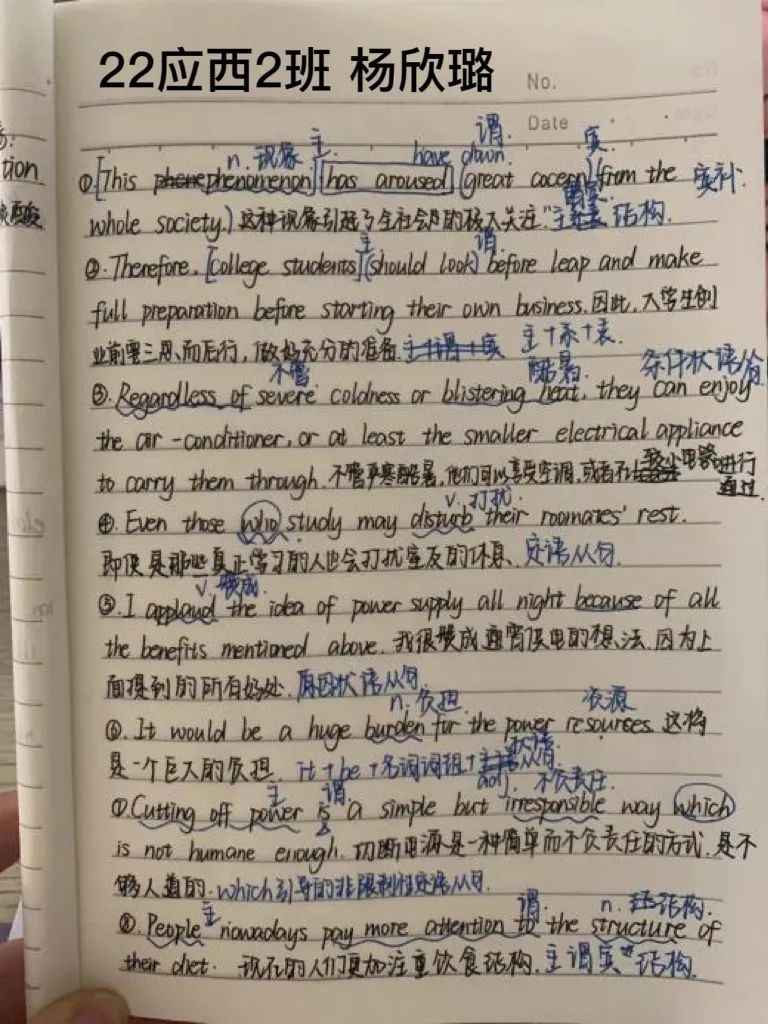 22应西2班 杨欣璐
No.
Date
tion
谓. 宾
n. 现象 主. have drawn.
①.[This phenomenon][has aroused](great cocern)(from the 宾补.
whole society.)这种现象引起了全社会的极大关注."主谓宾"结构.
主 谓.
②.Therefore.[College students](should look) before leap and make
full preparation before starting their own business.因此,大学生创
业前要三思、而后行,做好充分的准备.主+谓+宾 主+系+表.
不管 酷暑. 条件状语从句
③.Regardless of severe coldness or blistering heat, they can enjoy
the air-conditioner, or at least the smaller electrical appliance
to carry them through.不管严寒酷暑,他们可以享受空调,或者 较小电器进行
通过.
v. 打扰
④.Even those who study may disturb their roomates' rest.
即使是那些真正学习的人也会打扰室友的休息、定语从句.
v. 赞成.
⑤.I applaud the idea of power supply all night because of all
the benefits mentioned above.我很赞成通宵供电的想法.因为上
面提到的所有好处.原因状语从句.
n. 负担 资源
⑥.It would be a huge burden for the power resources.这将
是一个巨大的负担. it+be+名词词组+
主 谓 adj. 不负责任.
⑦Cutting off power is a simple but irresponsible way which
is not humane enough.切断电源是一种简单而不负责任的方式.是不
够人道的.which引导的非限制性定语从句.
主 谓. n. 结构.
⑧.People nowadays pay more attention to the structure of
their diet. 现在的人们更加注重饮食结构.主谓宾"结构.